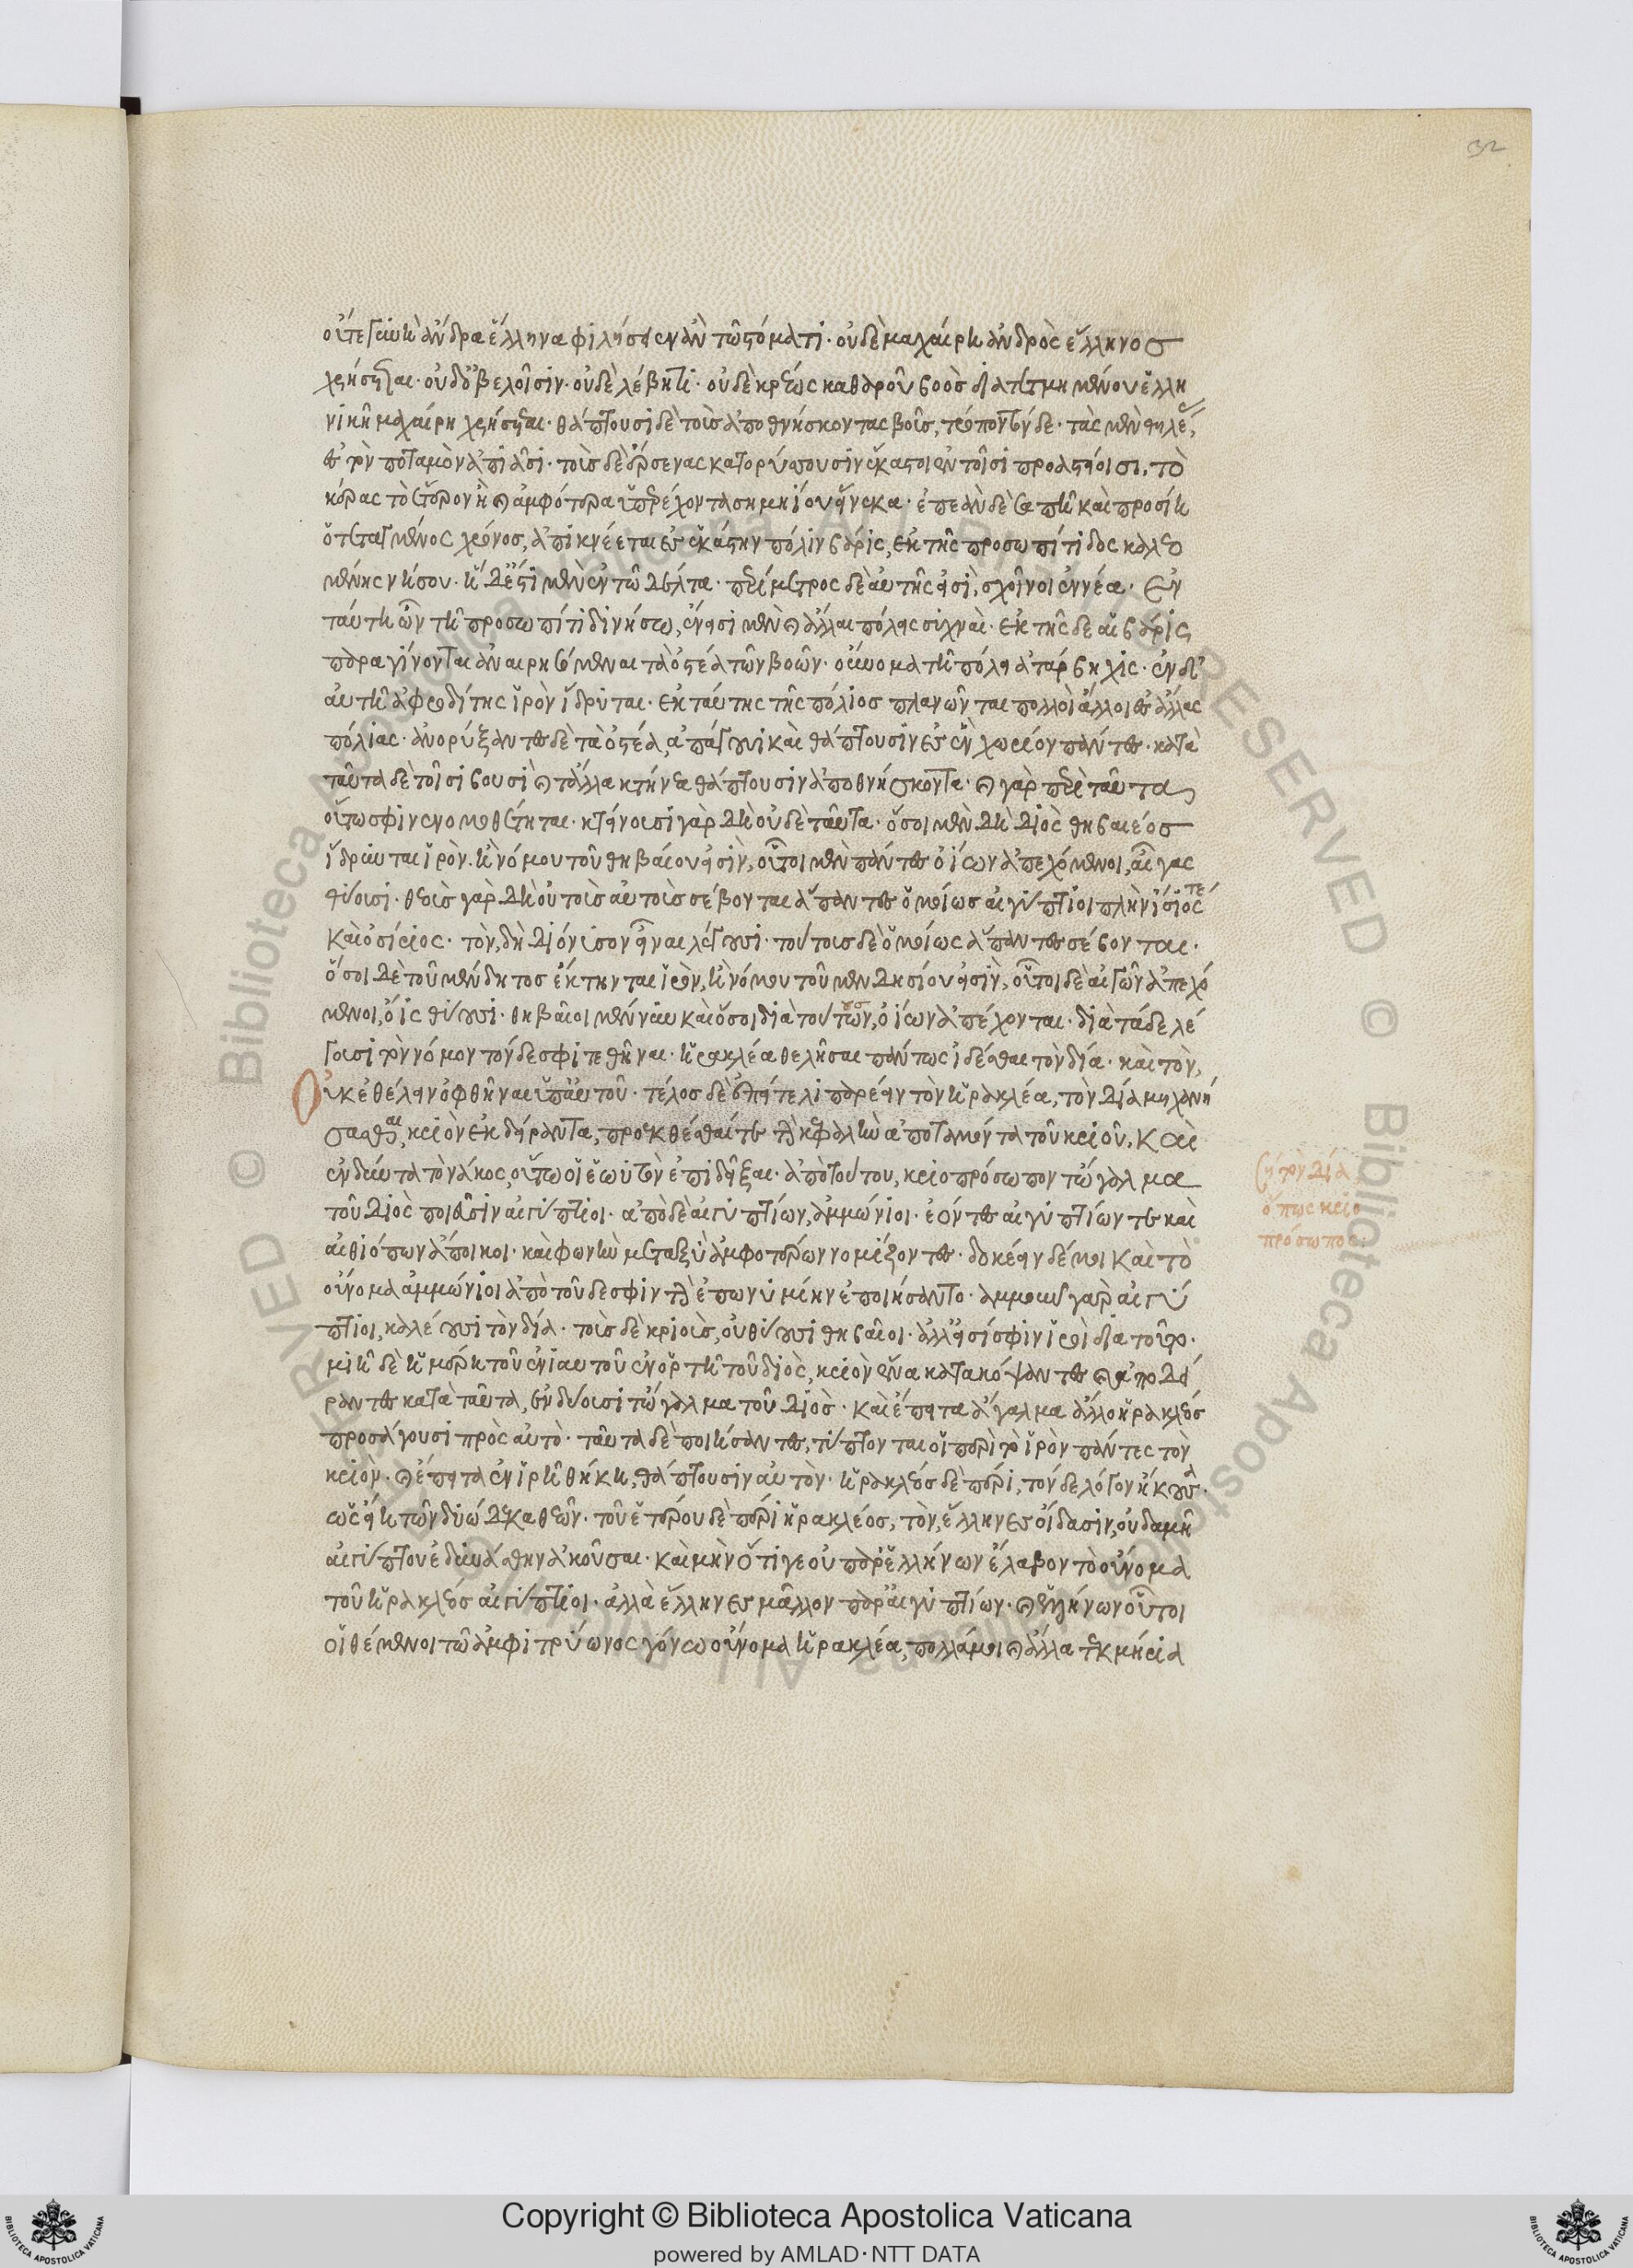 32
οὔτε γυνὴ ἄνδρα ἕλληνα φιλήσειεν ἂν τῶ στόματι· οὐδὲ μαχαίρη ἀνδρὸς ἕλληνος
χρήσεται· οὐδ' ὀβελοῖσιν· οὐδὲ λέβητι· οὐδὲ κρέως καθαροῦ βοὸς διατετμημένου ἑλλη
νικῆ μαχαίρη χρήσεται· θάπτουσι δὲ τοὺς ἀποθνήσκοντας βοῦς, τρόπον τόνδε· τὰς μὲν θηλέ,
ἐς τὸν ποταμὸν ἀπιᾶσι· τοὺς δὲ ἔρσενας κατορύσσουσιν ἕκαστοι ἐν τοῖσι προαστήοισι, τὸ
κέρας τὸ ἕτερον ἢ καὶ ἀμφότερα ὑπερέχοντα σημηίου εἵνεκα· ἐπεὰν δὲ σαπῆ καὶ προσίη
ὁ τεταγμένος χρόνος, ἀπικνέεται ἐς ἑκάστην πόλιν βᾶρις, ἐκ τῆς προσωπίτιδος καλεο
μένης νήσου· ἡ δ' ἔστι μὲν ἐν τῶ δέλτα· περίμετρος δὲ αὐτῆς εἰσὶ, σχοῖνοι ἐννέα· ἐν
ταύτη ὦν τῆ προσωπίτιδι νήσω, ἔνεισι μὲν καὶ ἄλλαι πόλεις συχναί· ἐκ τῆς δὲ αἱ βάρις
παραγίνονται ἀναιρησόμεναι τὰ ὀστέα τῶν βοῶν· οὔνομα τῆ πόλει ἀτάρβηχις· ἐν δ'
αὐτῆ ἀφροδίτης ἱρὸν ἵδρυται· ἐκ ταύτης τῆς πόλιος πλανῶνται πολλοὶ ἄλλοι ἐς ἄλλας
πόλιας· ἀνορύξαντες δὲ τὰ ὀστέα, ἀπάγουσι καὶ θάπτουσιν ἐς ἓν χωρίον πάντες· κατὰ
ταῦτα δὲ τοῖσι βουσὶ καὶ τἆλλα κτήνεα θάπτουσιν ἀποθνήσκοντα· καὶ γὰρ περὶ ταῦτα
οὕτω σφιν ενομοθέτηται· κτείνουσι γὰρ δὴ οὐδὲ ταῦτα· ὅσοι μὲν δὴ διὸς θηβαιέος
ἵδρυται ἱρὸν. ἢ νόμου τοῦ θηβαίου εἰσὶν, οὗτοι μὲν πάντες ὀίων ἀπεχόμενοι, αἶγας
θύουσι· θεοὺς γὰρ δὴ οὐ τοὺς αὐτοὺς σέβονται ἅπαντες ὁμοίως αἰγύπτιοι πλὴν ἴσιός τε
καὶ ὀσίριος· τὸν, δὴ διόνυσον εἶναι λέγουσι· τούτους δὲ ὁμοίως ἅπαντες σέβονται·
ὅσοι δὲ τοῦ μένδητος ἔκτηνται ἱρὸν, ἢ νόμου τοῦ μενδησίου εἰσὶν, οὗτοι δὲ αἰγῶν ἀπεχό
μενοι, ὄις θύουσι· θηβαῖοι μέν νυν καὶ ὅσοι διὰ τούτους, ὀίων ἀπέχονται· διὰ τάδε λέ
γουσι τὸν νόμον τόνδε σφι τεθῆναι· ἡρακλέα θελῆσαι πάντως ἰδέσθαι τὸν δία· καὶ τὸν,
Οὐκ ἐθέλειν ὀφθῆναι ὑπ' αὐτοῦ· τέλος δὲ ἐπείτε λιπαρέειν τὸν ἡρακλέα, τὸν δία μηχανή
σασθαι, κριὸν ἐκδείραντα, προεκθέσθαι τε τὴν κεφαλὴν ἀποταμόντα τοῦ κριοῦ, καὶ
ἐνδύντα τὸ νάκος, οὕτω οἱ ἑωυτὸν ἐπιδεῖξαι· ἀπὸ τούτου, κριοπρόσωπον τὤγαλμα
τοῦ διὸς ποιεῦσιν αἰγύπτιοι· ἀπὸ δὲ αἰγυπτίων, ἀμμώνιοι· ἐόντες αἰγυπτίων τε καὶ
αἰθιόπων ἄποικοι· καὶ φωνὴν μεταξὺ ἀμφοτέρων νομίζοντες· δοκέειν δέ μοι καὶ τὸ
οὔνομα ἀμμώνιοι ἀπὸ τοῦδε σφιν τὴν ἐπωνυμίην ἐποιήσαντο· ἀμμοῦν γὰρ αἰγύ
πτιοι, καλέουσι τὸν δία· τοὺς δὲ κριοὺς, οὐ θύουσι θηβαῖοι· ἀλλ' εἰσί σφιν ἱροὶ διὰ τοῦτο·
μιῆ δὲ ἡμέρη τοῦ ἐνιαυτοῦ ἐν ὁρτῆ τοῦ διὸς, κριὸν ἕνα κατακόψαντες καὶ ἀποδεί
ραντες κατὰ ταῦτα, ἐνδύουσι τὤγαλμα τοῦ διός· καὶ ἔπειτα ἄγαλμα ἄλλο ἡρακλέος
προσάγουσι πρὸς αὐτό· ταῦτα δὲ ποιήσαντες, τύπτονται οἱ περὶ τὸ ἱρὸν πάντες τὸν
κριόν· καὶ ἔπειτα ἐν ἱρῆ θήκη, θάπτουσιν αὐτόν· ἡρακλέος δὲ πέρι, τόνδε λόγον ἤκουσα·
ὡς εἴη τῶν δυώδεκα θεῶν· τοῦ ἑτέρου δὲ πέρι ἡρακλέος, τὸν, ἕλληνες οἴδασιν, οὐδαμῆ
αἰγύπτου ἐδυνάσθην ἀκοῦσαι· καὶ μὴν ὅτι γε οὐ παρ' ἑλλήνων ἔλαβον τὸ οὔνομα
τοῦ ἡρακλέος αἰγύπτιοι· ἀλλὰ ἕλληνες μᾶλλον παρ' αἰγυπτίων· καὶ ἑλλήνων οὗτοι
οἱ θέμενοι τῶ ἀμφιτρύωνος γόνω οὔνομα ἡρακλέα, πολλά μοι καὶ ἄλλα τεκμήρια
ὅπως κριο
πρόσωπος:
Copyright © Biblioteca Apostolica Vaticana
powered by AMLAD·NTT DATA